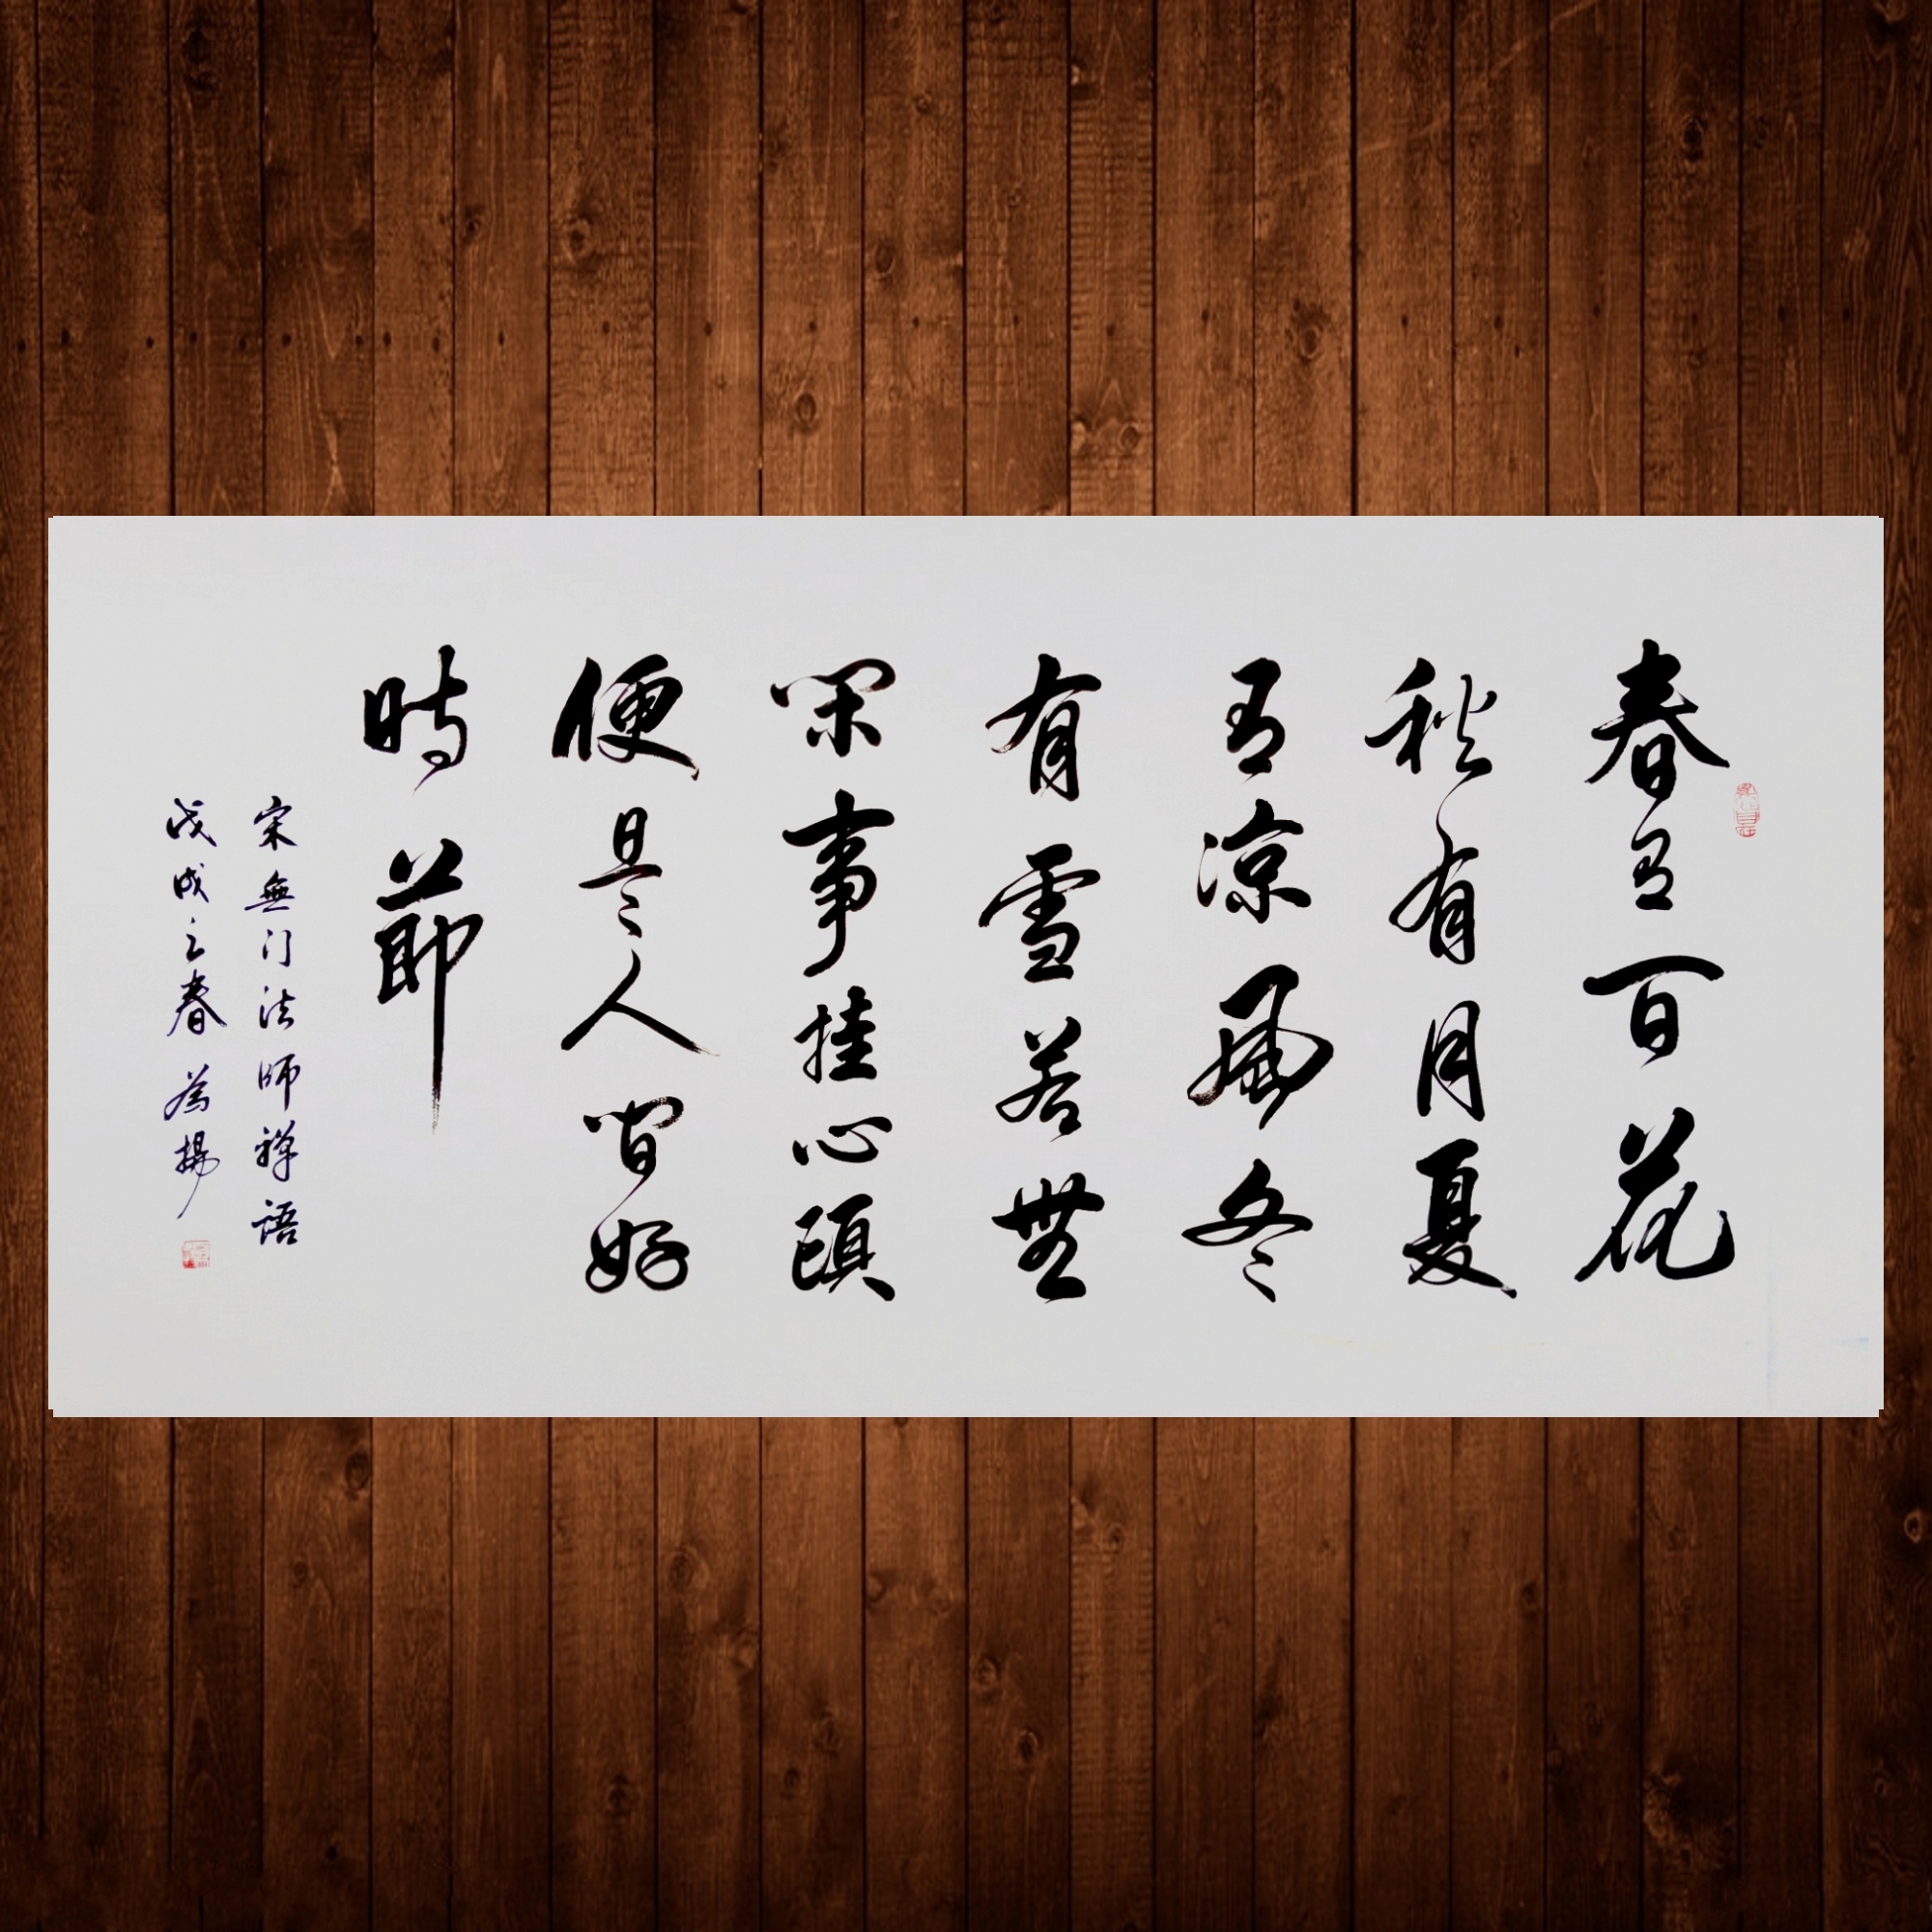 春有百花
秋有月夏
有凉風冬
有雪若無
閑事挂心頭
便是人間好
時節
宋無门法師禅語
戊戌之春 為揚